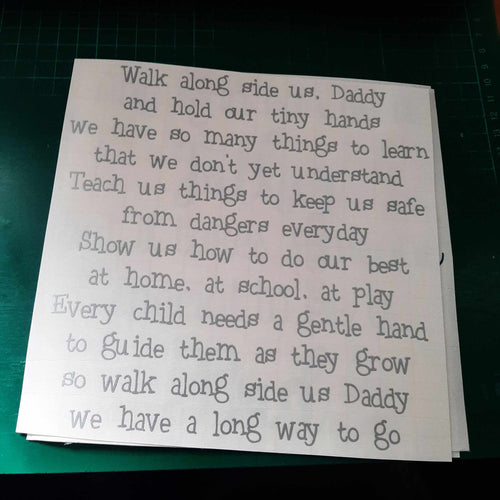 Walk along side us, Daddy
and hold our tiny hands
we have so many things to learn
that we don't yet understand
Teach us things to keep us safe
from dangers everyday
Show us how to do our best
at home, at school, at play
Every child needs a gentle hand
to guide them as they grow
so walk along side us Daddy
we have a long way to go